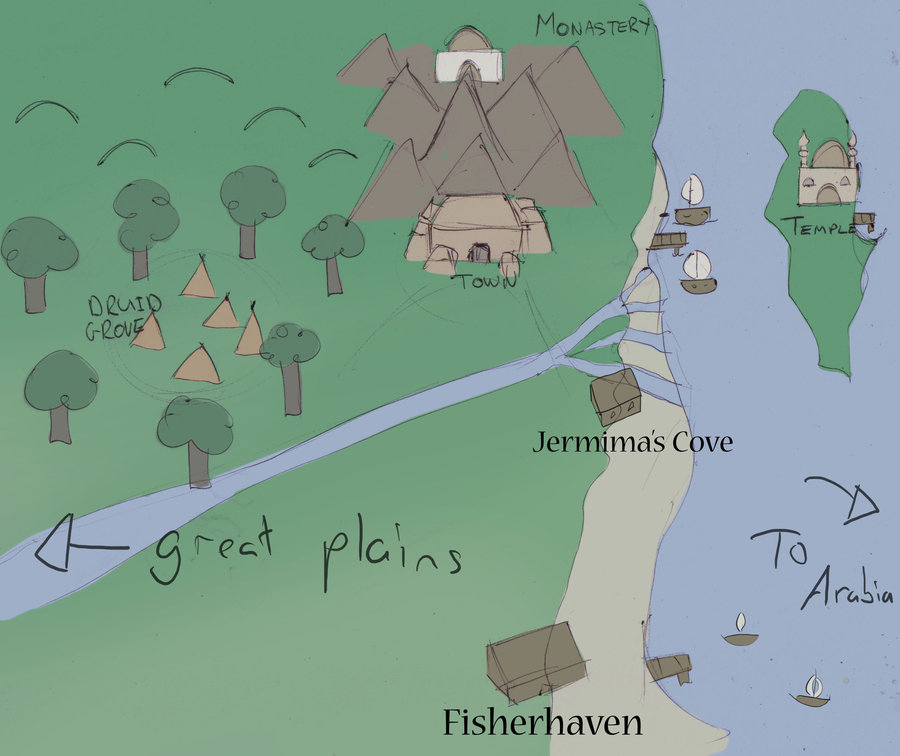 MONASTERY
TEMPLE
TOWN
DRUID
GROVE
Jermima's Cove
great plains
To
Arabia
Fisherhaven